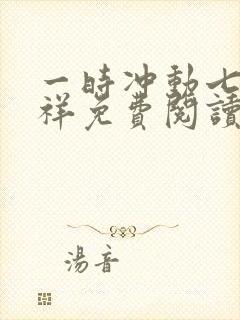 一時冲動七
祥免費閱讀
湯音